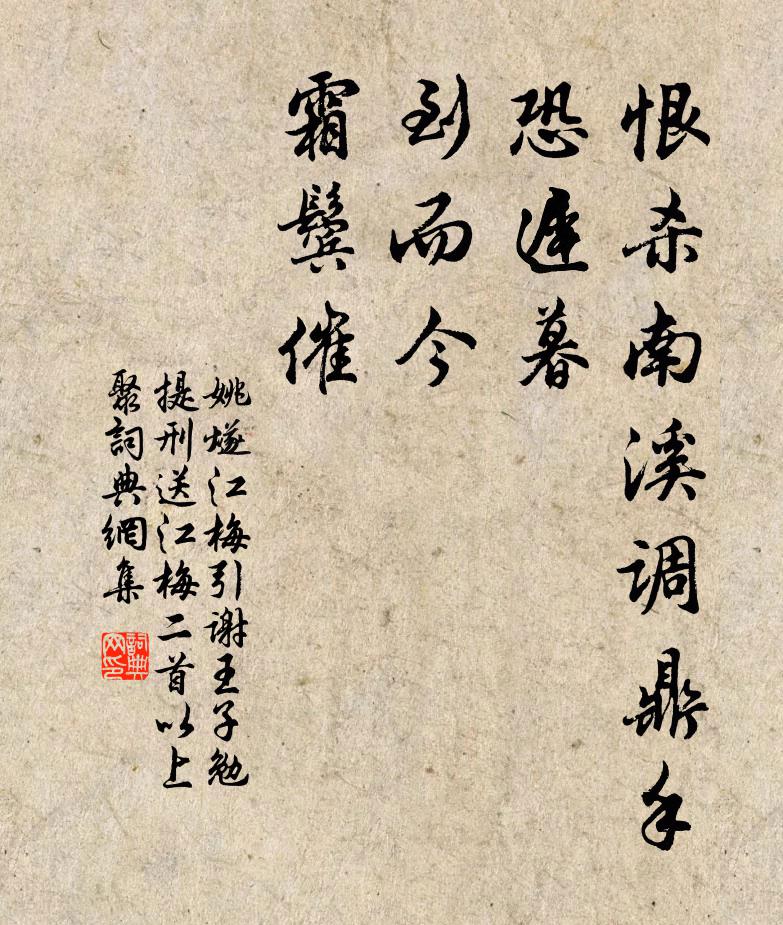 恨杀南溪调鼎手
恐遲暮
到而今
霜鬢催
姚燧江梅引谢王子勉
提刑送江梅二首以上
聚詞典網集
詞典
网印